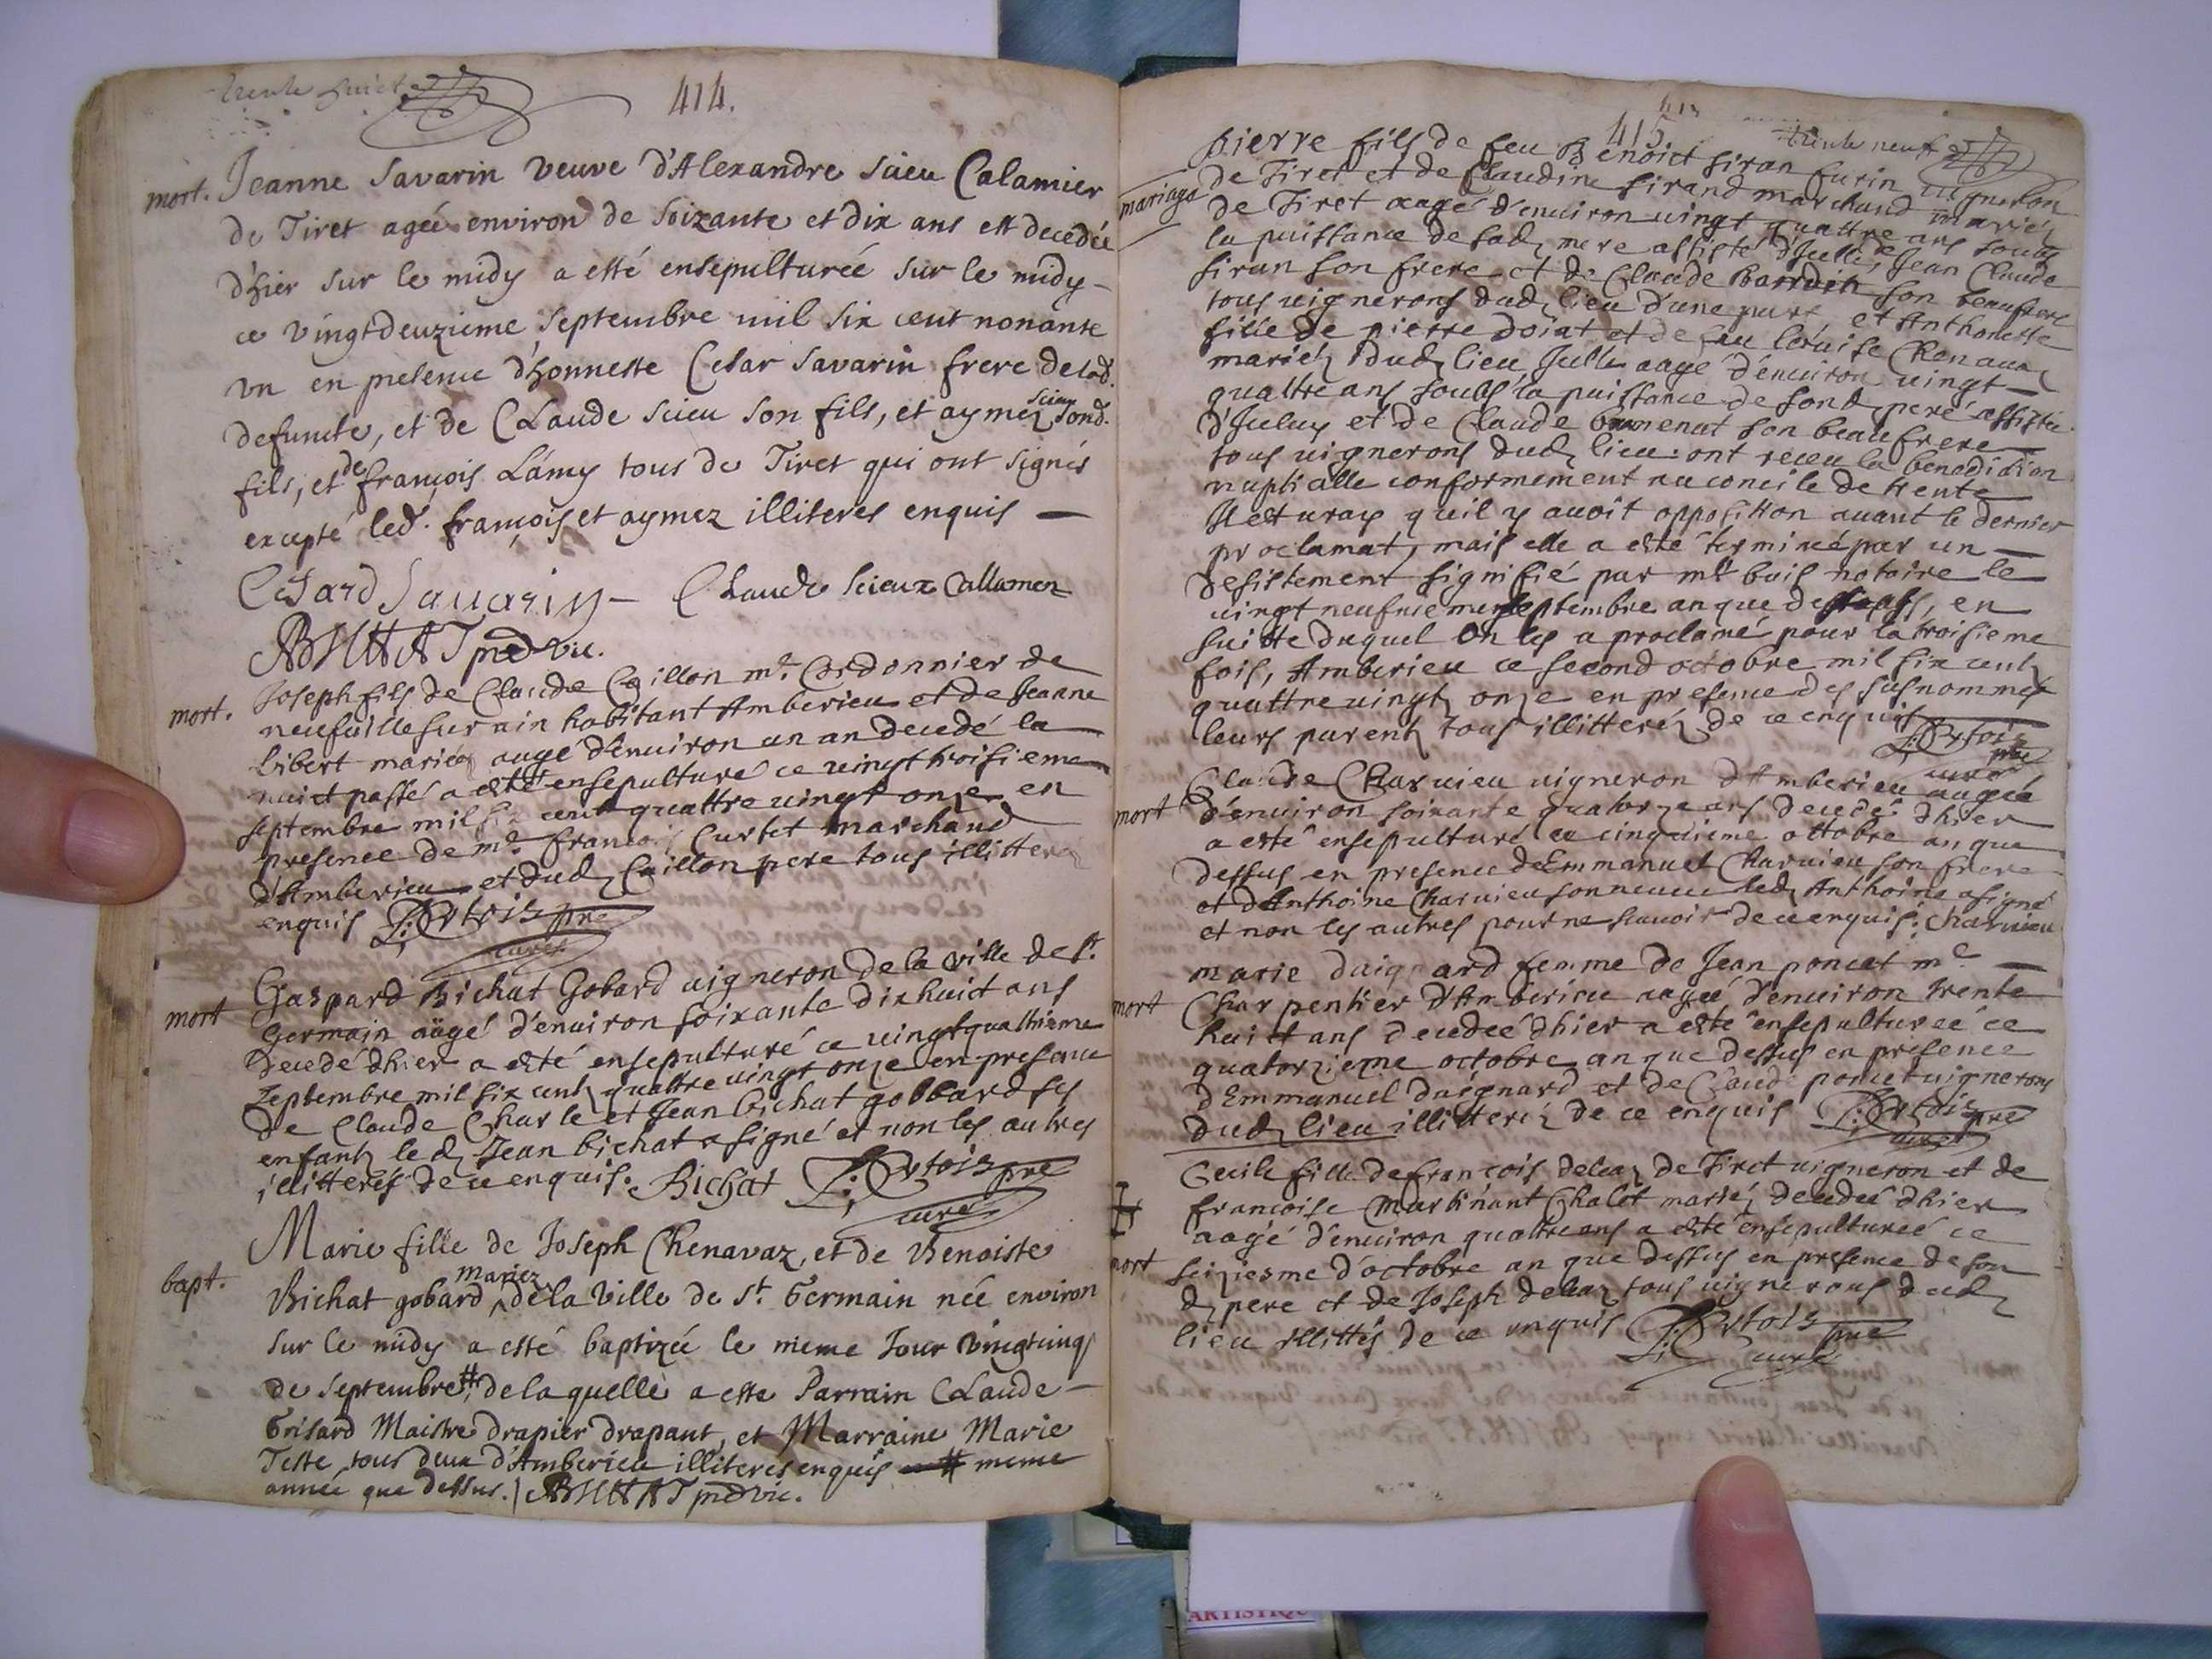 trente huict
414.
mort. Jeanne Savarin veuve d'Alexandre Scieu Calamier
de Tiret agée environ de soixante et dix ans est decedée
d'hier sur le midy a esté ensepulturée sur le midy -
ce vingtdeuzieme septembre mil six cent nonante
vn en presence d'honneste Cesar Savarin frere delad.
defuncte, et de CLaude scieu son fils, et aymez scieu sond.
fils, et de françois Lámy tous de Tiret qui ont signés
excepté led. françois et aymez illiteres enquis —
Cesard Savarin - CLaude scieux Callamez
ABHAT vic.
mort. Joseph fils de Claude Caillon me. Cordonnier de
neufuille sur ain habitant Amberieu et de Jeanne
Libert mariéz aagé d'enuiron un an decedé la
nuict passé a esté ensepulturé ce vingt troisieme
septembre mil six cent quattre vingt onze en
presence de me. francois Curtet marchand
d'Amberieu et dud, Caillon pere tous illittere
enquis Ortois pre
curé
mort Gaspard Bichat Gobard uigneron de la ville de st.
Germain aägé d'enuiron soixante dixhuict ans
decedé dhier a esté ensepulturé ce uingtquattrieme
Septembre mil six centz quattre uingt onze en presence
de Claude Charle et Jean bichat gobbard ses
enfantz le d, Jean bichat a signé et non les autres
illitterés de ce enquis. Bichat Ortois pre
curé
bapt. Marie fille de Joseph Chenavaz, et de Benoiste
Bichat gobard mariez de la Ville de st. Germain née environ
sur le midy a esté baptizée le meme Jour vingtcinq
de septembre # de laquelle a este Parrain CLaude -
Grisard Maistre drapier drapant, et Marraine Marie
Teste tous deux d'Amberieu illiteres enquis # meme
année que dessus. ABHAT vic.
415
trente neuf
Pierre fils de feu Benoict siran furin uigneron
mariage de Tiret et de Claudine sirand marchand mariéz
de Tiret aagé d'enuiron uingt quattre ans soubs
la puissance de sad, mere assisté d'Icelle, de Jean Claude
siran son frere et de Claude Barroin son beaufrere
tous uignerons dud, lieu d'une part et Anthonette
fille de pierre doiat et de feu louise Chenauaz
mariéz dud, lieu Icelle aagé d'enuiron uingt
quattre ans soubs la puissance de sond, pere assistée
d'Iceluy et de Claude bounenat son beaufrere
tous uignerons dud, lieu: ont receu la benediction
nuptialle conformement au concile de trente
Il est uray quil y auoit opposition auant le dernier
proclamat, mais elle a esté terminé par un
desistement signifié par me buis notaire le
uingt neufuieme septembre an que dessus, en
suitte duquel on les a proclamé pour la troisieme
fois, Amberieu ce second octobre mil six centz
quattre uingtz onze en presence des susnommés
leurs parentz tous illitteréz de ce enquis Ortois
pre
curé
mort Claude Charuieu uigneron d'Amberieu aagée
d'enuiron soixante quatorze ans decedé dhier
a esté ensepulturé ce cinquieme octobre an que
dessus en presence de Emmanuel Charuieu son frere
et d'Anthoine Charuieu son neueu led, Anthoine a signé
et non les autres pour ne scauoir de ce enquis. Charuieu
marie daignard femme de Jean poncet me
mort Charpentier d'Amberieu aagée d'enuiron trente
huict ans decedeé dhier a esté ensepultureé ce
quatorzieme octobre an que dessus en presence
d'Emmanuel daignard et de Claude poncet uignerons
dud, lieu illitteréz de ce enquis Ortois pre
curé
Cecile fille de francois deluaz de Tiret uigneron et de
francoise Martinant Chalet mariéz decedeé dhier
aagé d'enuiron quattre ans a esté ensepultureé ce
mort seiziesme d'octobre an que dessus en presence de son
d, pere et de Joseph deluaz tous uignerons dud,
lieu illittés de ce enquis Ortois
pre
curé
ARTISTIQ